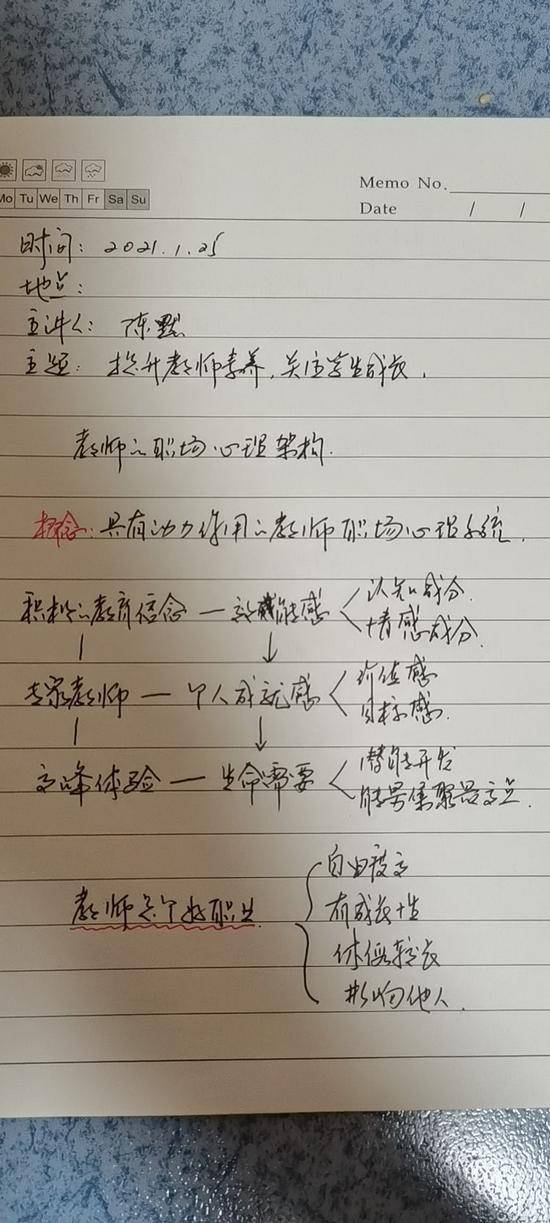 Memo No.
Mo Tu We Th Fr Sa Su
Date / /
时间：2021.1.25
地点：
主讲人：陈默
主题：提升教师素养，关注学生成长．
教师的职场心理架构．
概念：具有动力作用的教师职场心理系统．
积极的教育信念 — 效能感 认知成分．
情感成分．
专家教师 — 个人成就感 价值感
目标感．
高峰体验 — 生命需要 潜能开发
能量集聚最高点．
教师是个好职业 自由度高
有成长性
休假较长
影响他人．